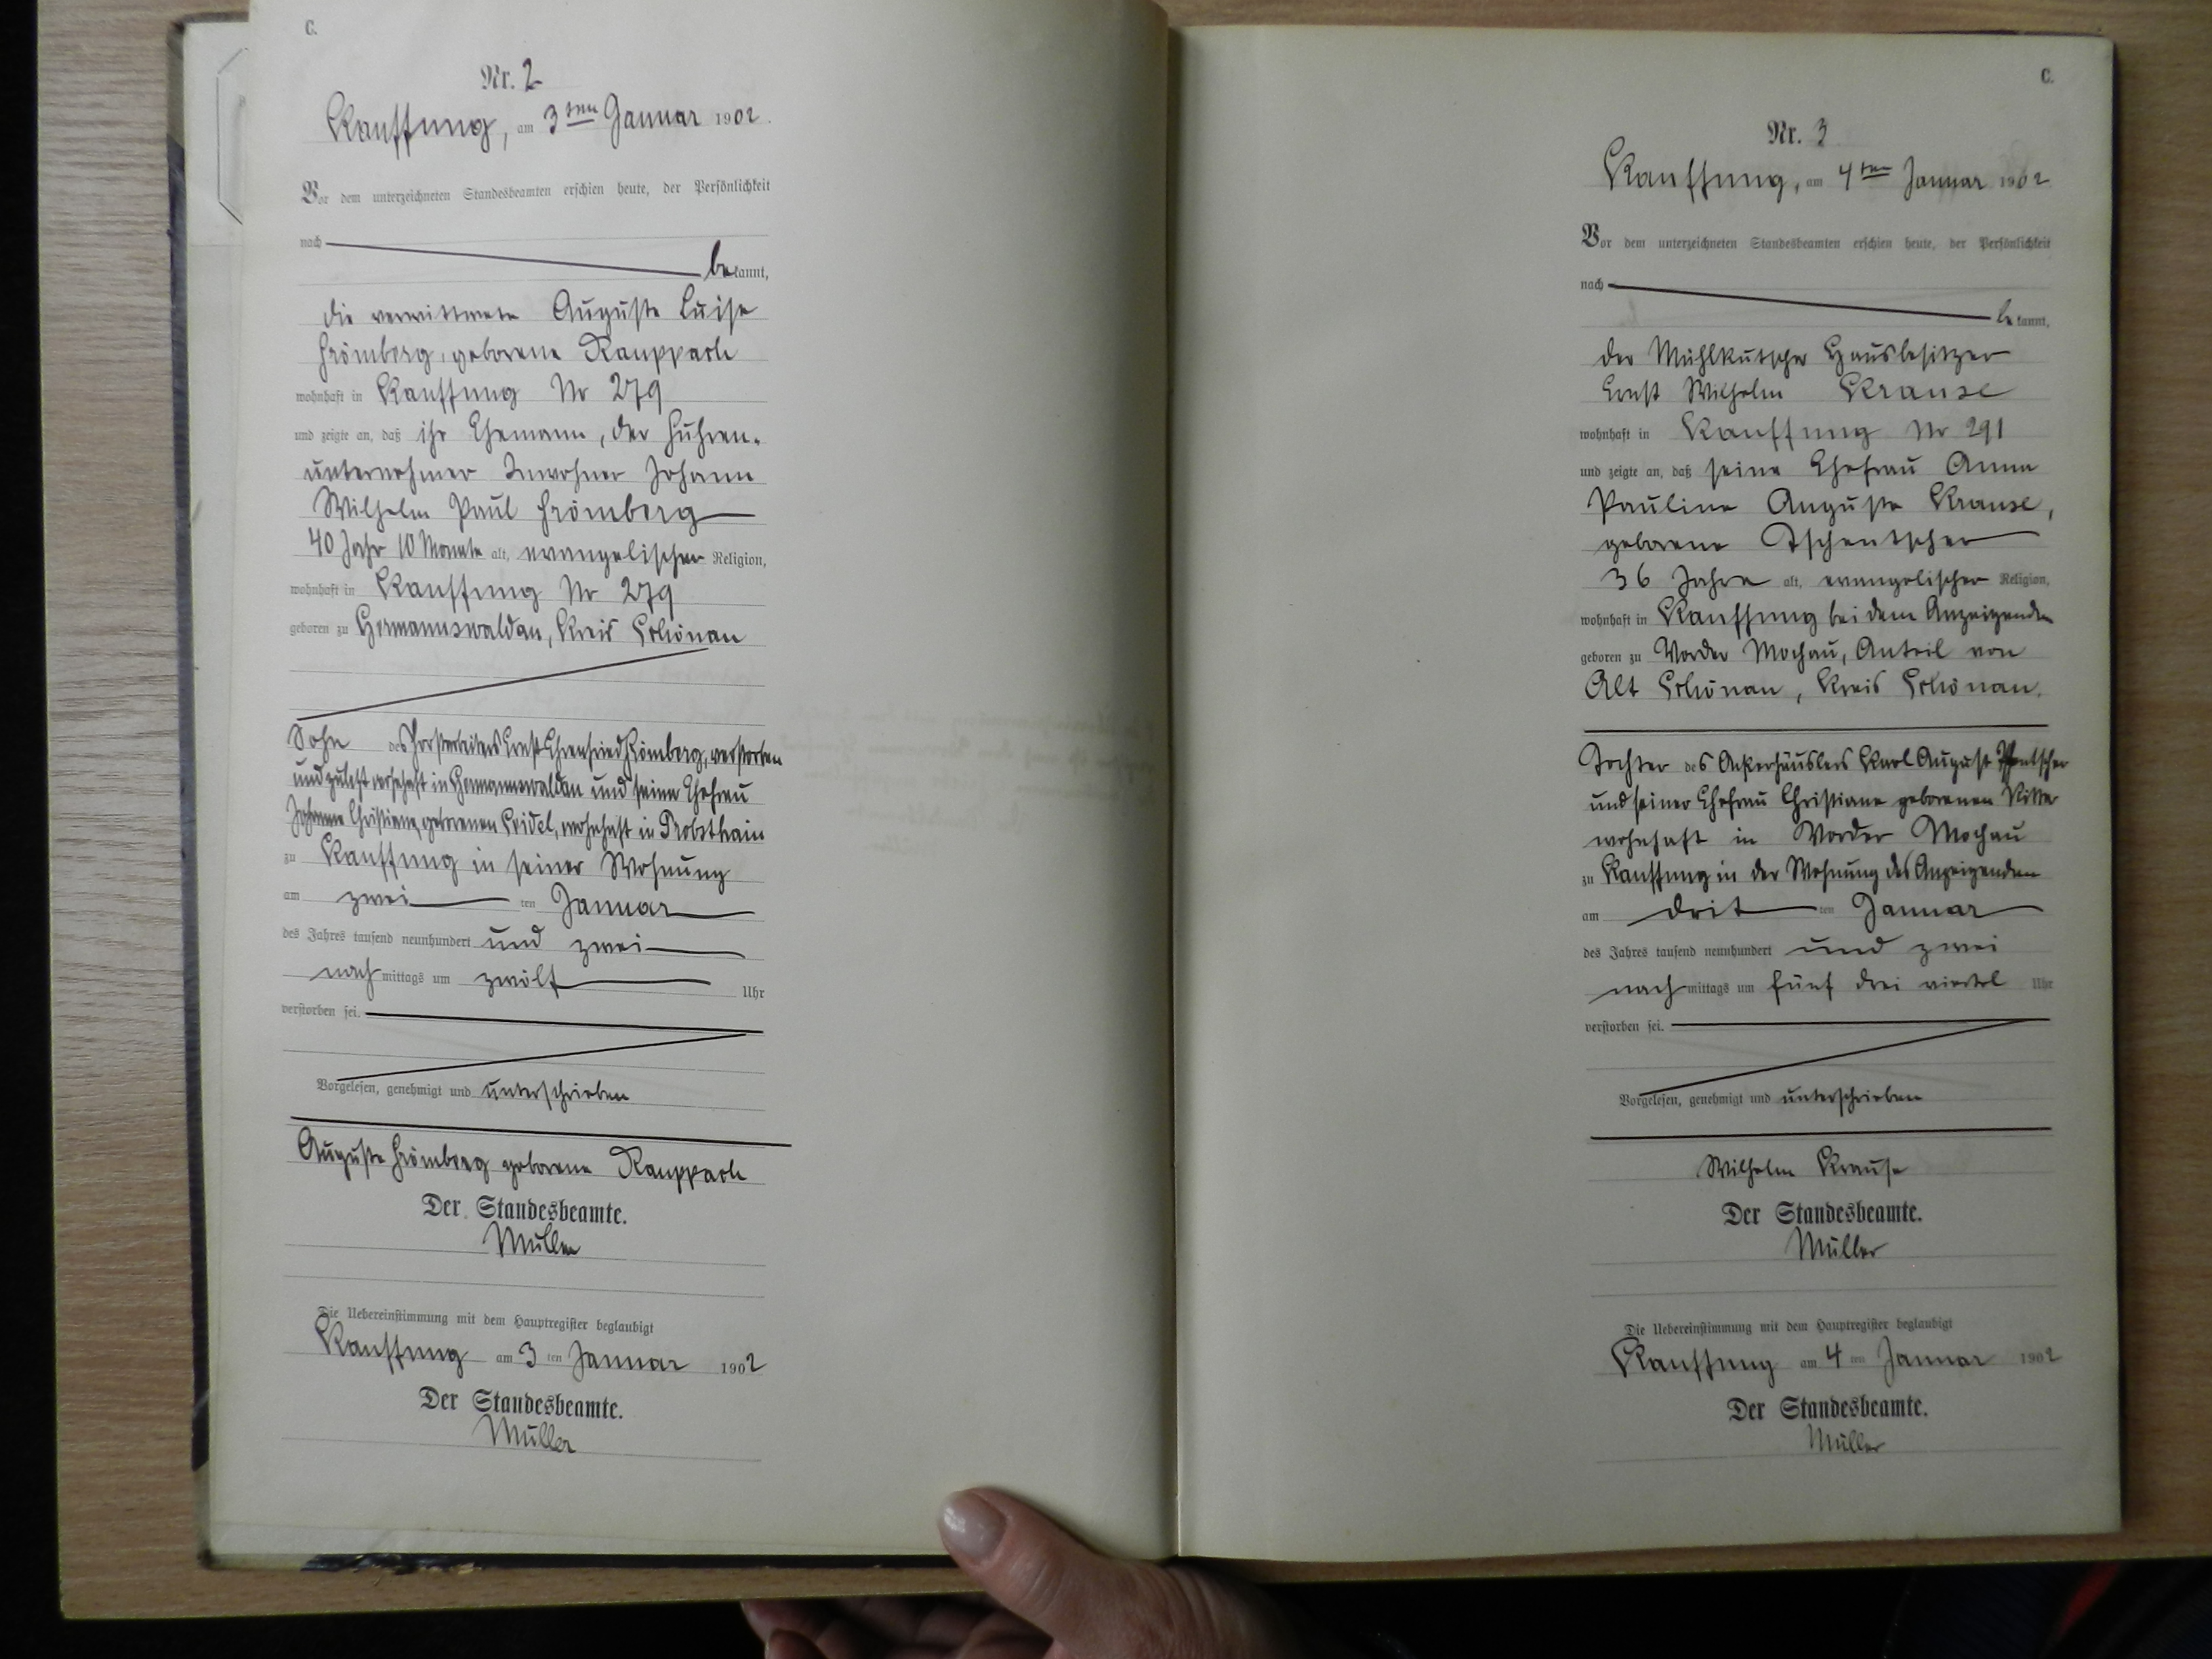 C.
Nr. 2
Kauffung, am 3ten Januar 1902.
Vor dem unterzeichneten Standesbeamten erschien heute, der Persönlichkeit
nach
bekannt,
die verwittwete Auguste Luise
Frömberg, geborene Raupbach
wohnhaft in Kauffung Nr 279
und zeigte an, daß ihr Ehemann, der Fuhren-
unternehmer Inwohner Johann
Wilhelm Paul Frömberg
40 Jahr 10 Monate alt, evangelischer Religion,
wohnhaft in Kauffung Nr 279
geboren zu Hermannswaldau, Kreis Schönau
Sohn des Forstarbeiters Ernst Ehrenfried Frömberg, verstorben
und zuletzt wohnhaft in Hermannswaldau und seiner Ehefrau
Johanne Christiane geborenen Seidel, wohnhaft in Probsthain
zu Kauffung in seiner Wohnung
am zwei ten Januar
des Jahres tausend neunhundert und zwei
nachmittags um zwölf Uhr
verstorben sei.
Vorgelesen, genehmigt und unterschrieben
Auguste Frömberg geborene Raupbach
Der Standesbeamte.
Müller
Die Uebereinstimmung mit dem Hauptregister beglaubigt
Kauffung am 3 ten Januar 1902
Der Standesbeamte.
Müller
C.
Nr. 3
Kauffung, am 4ten Januar 1902
Vor dem unterzeichneten Standesbeamten erschien heute, der Persönlichkeit
nach
bekannt,
der Mühlkutscher Hausbesitzer
Ernst Wilhelm Krause
wohnhaft in Kauffung Nr 291
und zeigte an, daß seine Ehefrau Anna
Pauline Auguste Krause,
geborene Tschentscher
36 Jahre alt, evangelischer Religion,
wohnhaft in Kauffung bei dem Anzeigenden
geboren zu Vorder Mochau, Anteil von
Alt Schönau, Kreis Schönau.
Tochter des Ackerhäuslers Karl August Tschentscher
und seiner Ehefrau Christiane geborenen Ritter
wohnhaft in Vorder Mochau
zu Kauffung in der Wohnung des Anzeigenden
am drit ten Januar
des Jahres tausend neunhundert und zwei
nachmittags um fünf drei viertel Uhr
verstorben sei.
Vorgelesen, genehmigt und unterschrieben
Wilhelm Krause
Der Standesbeamte.
Müller
Die Uebereinstimmung mit dem Hauptregister beglaubigt
Kauffung am 4 ten Januar 1902
Der Standesbeamte.
Müller